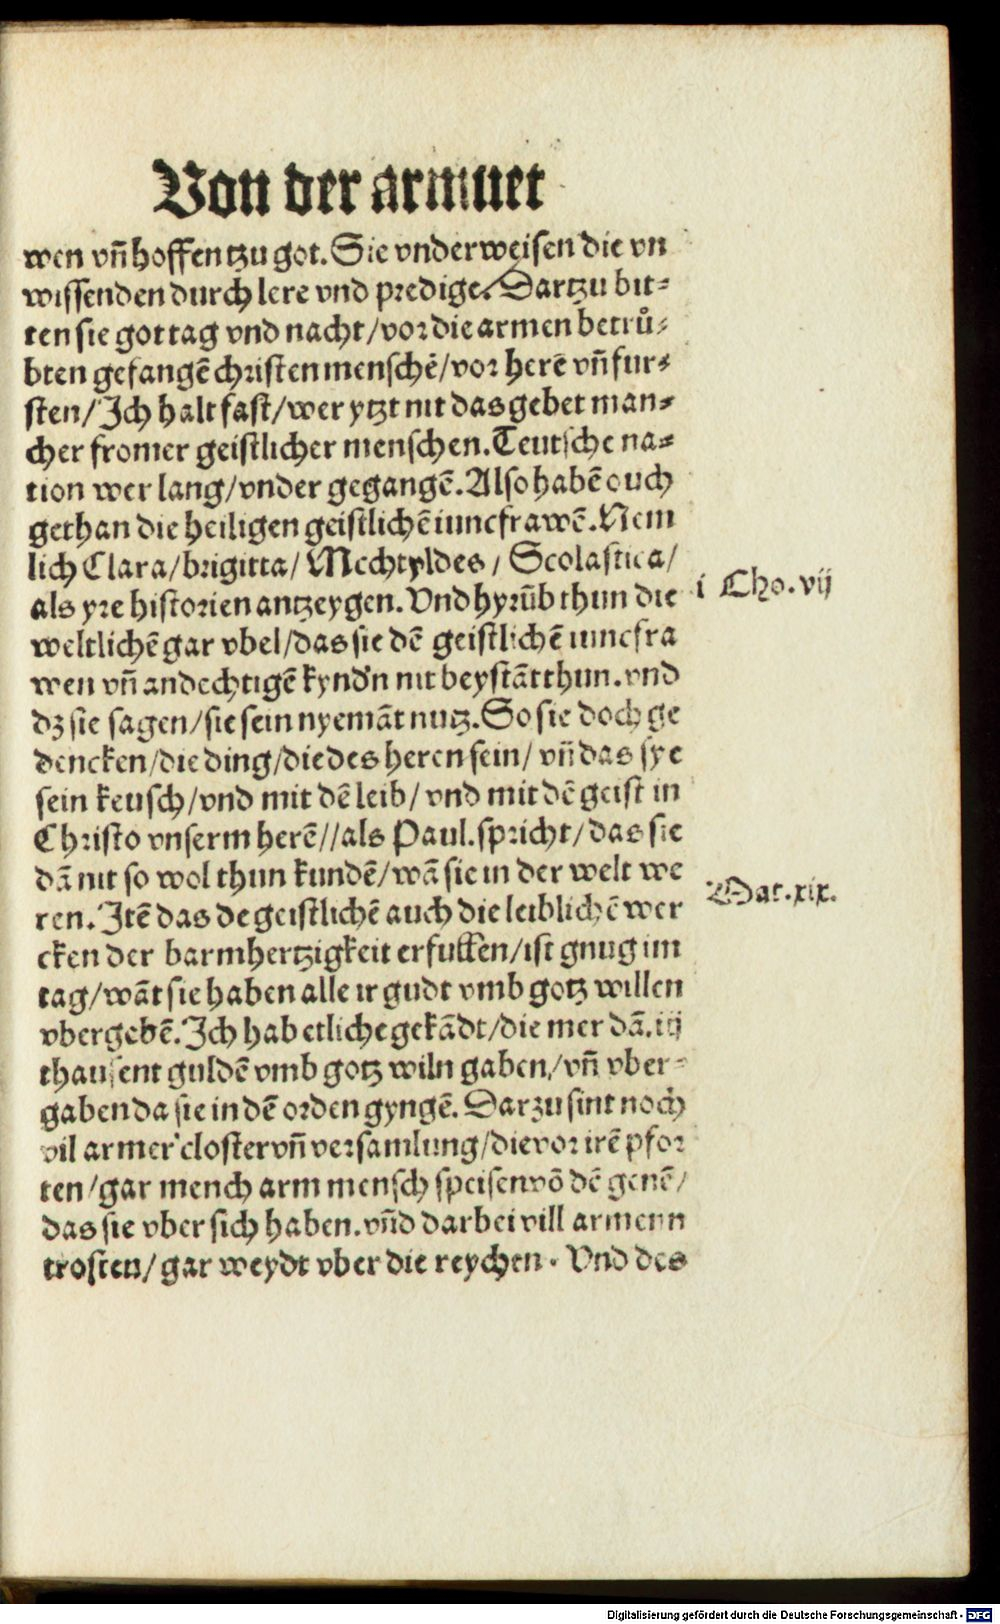 Von der armuet
wen vn̄ hoffen tzu got. Sie vnderweisen die vn
wissenden durch lere vnd predige. Dartzu bit⸗
ten sie got tag vnd nacht/vor die armen betrů⸗
bten gefangē christen menschē/vor herē vn̄ fur⸗
sten/Ich halt fast/wer ytzt nit das gebet man⸗
cher fromer geistlicher menschen. Teutsche na⸗
tion wer lang/vnder gegangē. Also habē ouch
gethan die heiligen geistlichē iuncfrawē. Nem
lich Clara/brigitta/Mechtyldes/Scolastica/
als yre historien antzeygen. Vnd hyrūb thun die
weltlichē gar vbel/das sie dē geistlichē iuncfra
wen vn̄ andechtigē kynd'n nit beystāt thun. vnd
dz sie sagen/sie sein nyemāt nutz. So sie doch ge
dencken/die ding/die des heren sein/vn̄ das sye
sein keusch/vnd mit dē leib/vnd mit dē geist in
Christo vnserm herē//als Paul. spricht/das sie
dā nit so wol thun kundē/wā sie in der welt we
ren. Itē das de geistlichē auch die leiblichē wer
cken der barmhertzigkeit erfullen/ist gnug im
tag/wāt sie haben alle ir gudt vmb gotz willen
vbergebē. Ich hab etliche gekādt/die mer dā. iij
thausent guldē vmb gotz wiln gaben/vn̄ vber⸗
gaben da sie in dē orden gyngē. Darzu sint noch
vil armer closter vn̄ versamlung/die vor irē pfor
ten/gar mench arm mensch speisen vō dē genē/
das sie vber sich haben. vn̄d darbei vill armenn
trosten/gar weydt vber die reychen. Vnd des
i Cho. vij
Mat. xix.
Digitalisierung gefördert durch die Deutsche Forschungsgemeinschaft - DFG